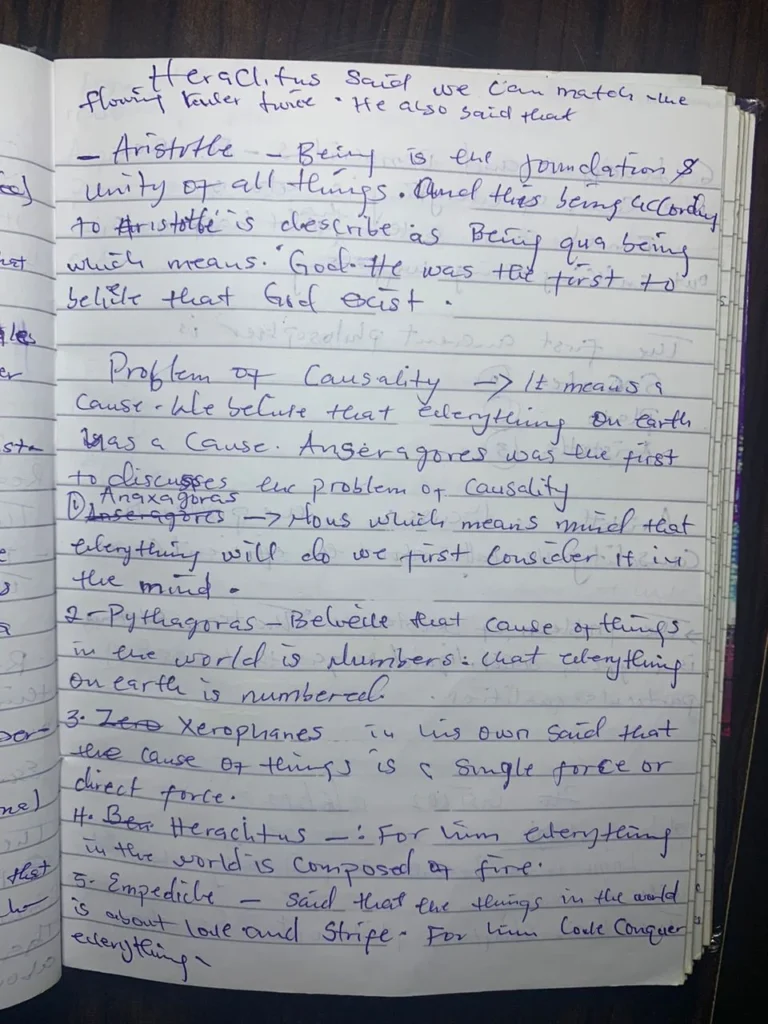 Heraclitus said we can match the
flowing water twice. He also said that
- Aristotle - Being is the foundation &
unity of all things. And this being according
to Aristotle is describe as Being qua being
which means. "God. He was the first to
believe that God exist.
Problem of Causality -> It means a
cause. We believe that everything on earth
has a cause. Anseragores was the first
to discusses the problem of causality
Anaxagoras
① Anseragores -> Nous which means mind that
everything will do we first consider it in
the mind.
2 - Pythagoras - Believe that cause of things
in the world is Numbers: that everything
on earth is numbered.
3. Zero Xerophanes in his own said that
the cause of things is a single force or
direct force.
4. Ben Heraclitus -: For him everything
in the world is composed of fire.
5. Empedicle - said that the things in the world
is about love and Stripe. For him Love Conquer
everything.